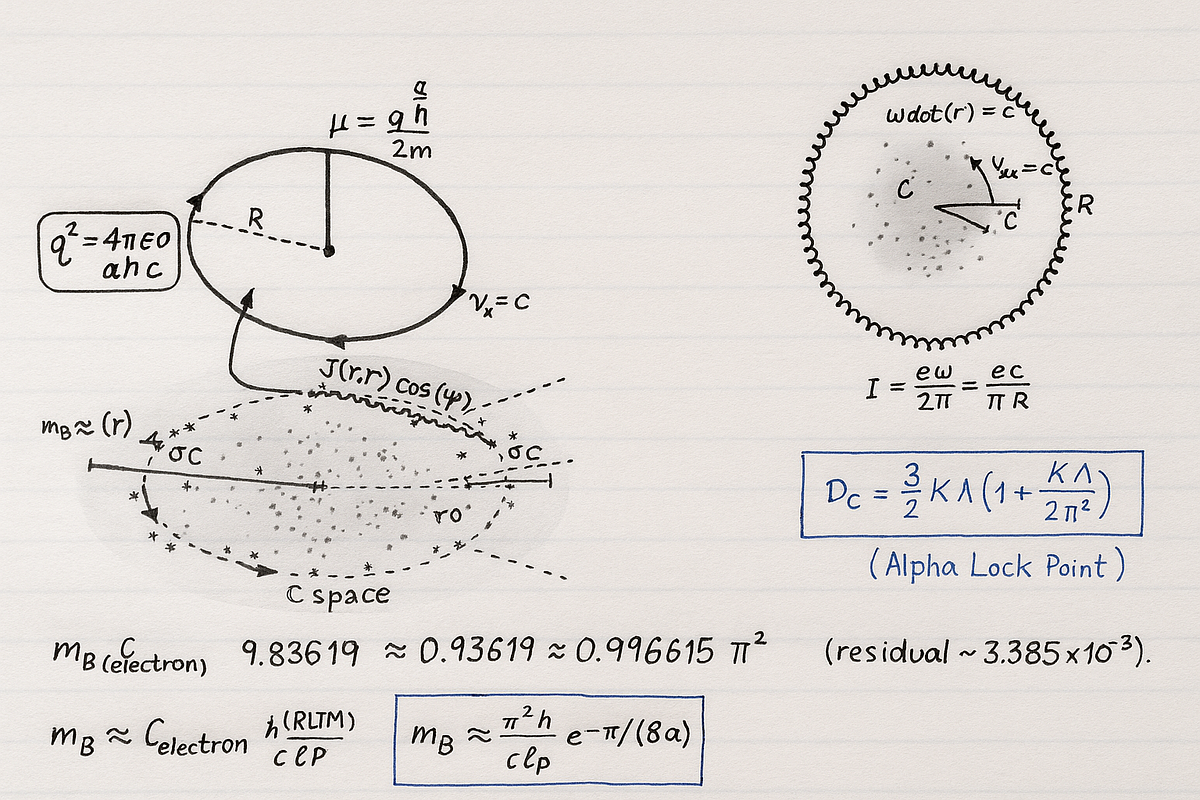 μ = q a/ħ / 2m
R
q² = 4πεo
aħc
νₓ = c
J(r,r) cos(φ)
m_B ≈ (r)
σC
σC
ro
C space
ωdot(r) = c
C
= c
C
R
I = eω/2π = ec/πR
D_C = 3/2 K Λ (1 + KΛ/2π²)
(Alpha Lock Point)
m_B^C (electron) 9.83619 ≈ 0.93619 ≈ 0.996615 π² (residual ~ 3.385x10⁻³).
m_B ≈ C_electron ħ(RLTM)/cℓP
m_B ≈ π²ħ/cℓp e-π/(8a)